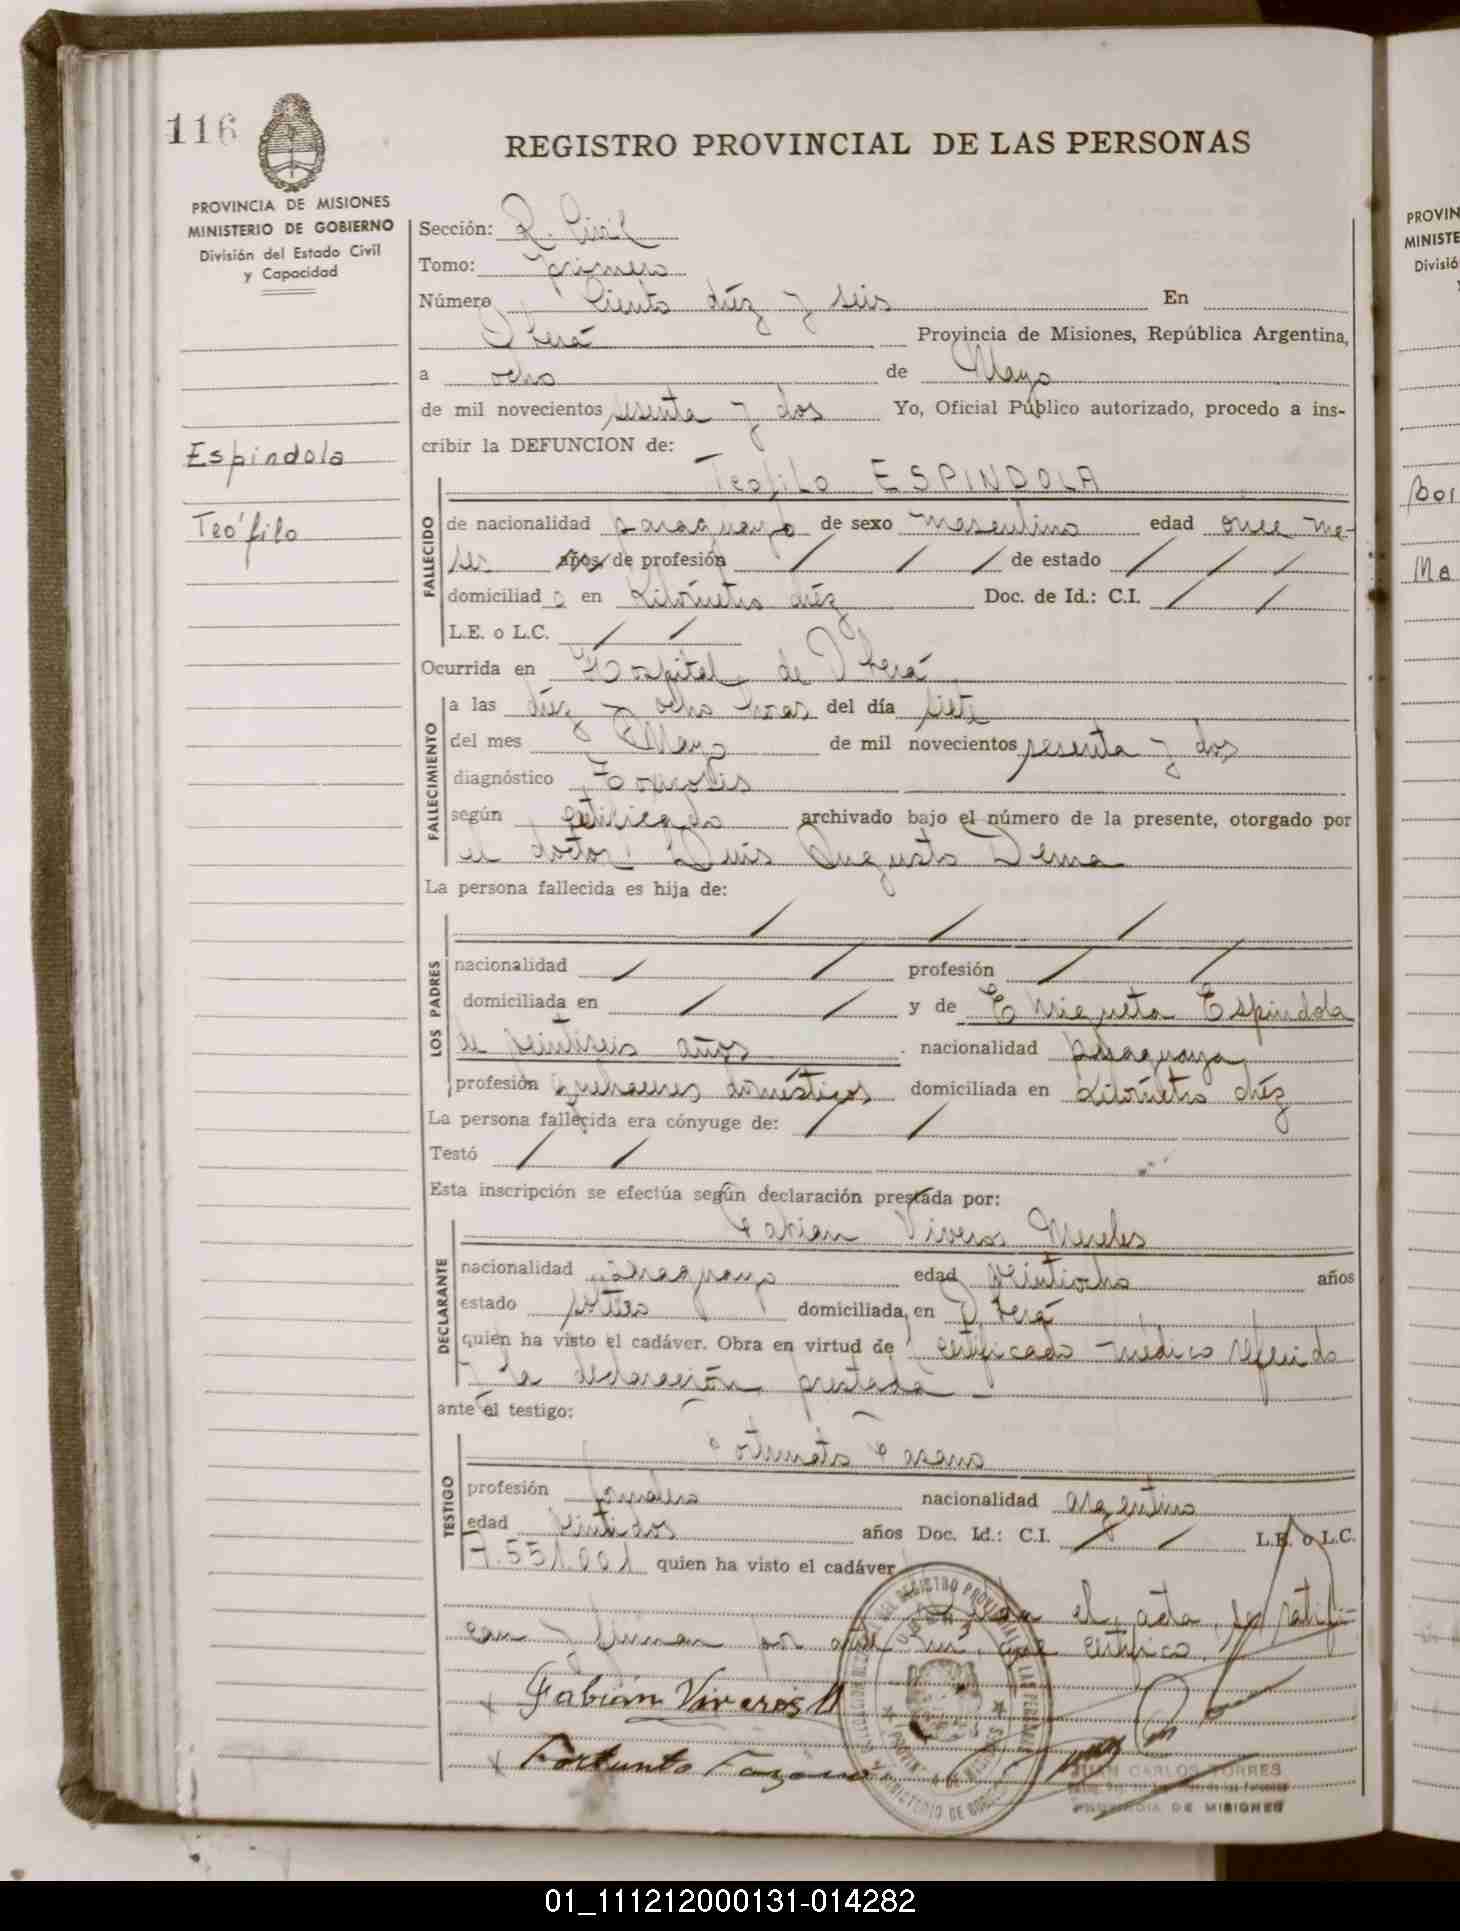 116
PROVINCIA DE MISIONES
MINISTERIO DE GOBIERNO
División del Estado Civil
y Capacidad
Espindola
Teófilo
REGISTRO PROVINCIAL DE LAS PERSONAS
Sección: R. Civil
Tomo: primero
Número Ciento diéz y seis En
Oberá Provincia de Misiones, República Argentina,
a ocho de Mayo
de mil novecientos sesenta y dos Yo, Oficial Público autorizado, procedo a ins-
cribir la DEFUNCION de:
Teofilo ESPINDOLA
FALLECIDO
de nacionalidad paraguayo de sexo masculino edad once me-
ses años de profesión / / / de estado / / /
domiciliado en Kilómetro diéz Doc. de Id.: C.I. / /
L.E. o L.C. / /
Ocurrida en Hospital de Oberá
FALLECIMIENTO
a las diéz y ocho horas del día siete
del mes Mayo de mil novecientos sesenta y dos
diagnóstico Toxicosis
según certificado archivado bajo el número de la presente, otorgado por
el doctor: Luis Augusto Derna
La persona fallecida es hija de:
/ / /
LOS PADRES
nacionalidad / / profesión / /
domiciliada en / / y de Enriqueta Espindola
de veintiseis años nacionalidad paraguaya
profesión quehaceres domésticos domiciliada en Kilómetro diéz
La persona fallecida era cónyuge de: / /
Testó / /
Esta inscripción se efectúa según declaración prestada por:
Fabian Viveros Mereles
DECLARANTE
nacionalidad paraguayo edad veintiocho años
estado soltero domiciliada en Oberá
quien ha visto el cadáver. Obra en virtud de certificado médico referido
y la declaración prestada
ante el testigo:
Fortunato Fasano
TESTIGO
profesión jornalero nacionalidad argentino
edad veintidos años Doc. Id.: C.I. / / L.E. o L.C.
7.551.001 quien ha visto el cadáver
el acta, se ratifi-
can y firman por ante mí, que certifico.
Fabián Viveros M
Fortunto Fazano
JUAN CARLOS TORRES
PROVINCIA DE MISIONES
PROVIN
MINISTE
Divisió
Ma
01_111212000131-014282